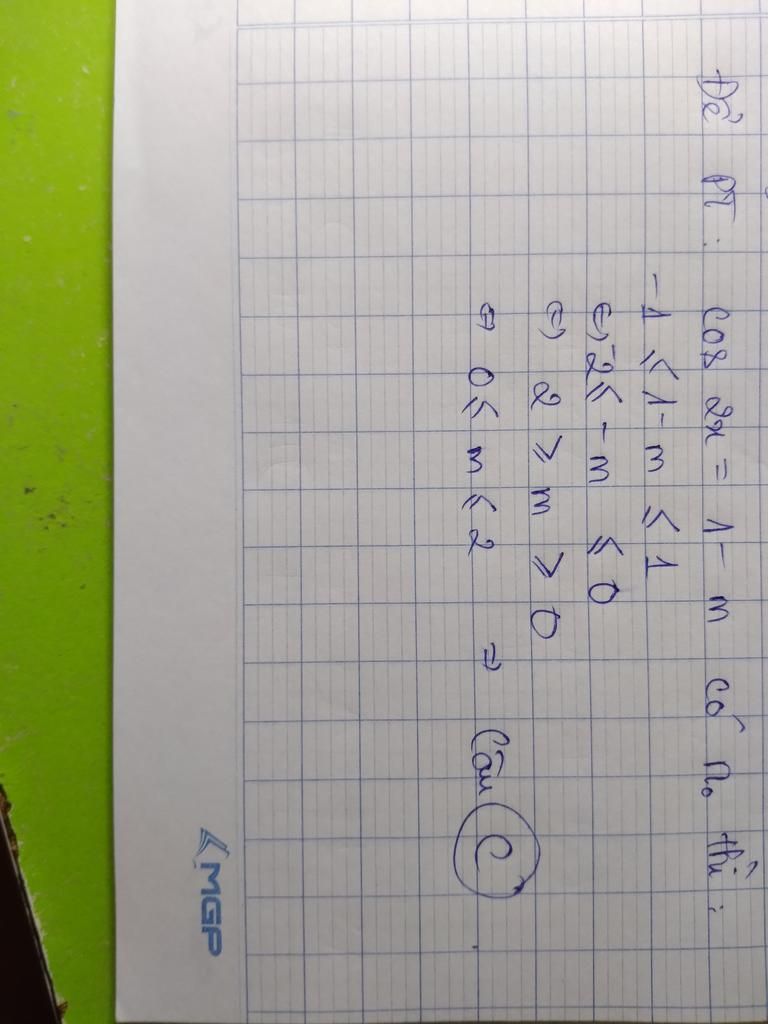 Để PT : cos 2x = 1 - m có n₀ thì :
-1 ≤ 1 - m ≤ 1
⇔ -2 ≤ -m ≤ 0
⇔ 2 ≥ m ≥ 0
⇔ 0 ≤ m ≤ 2 ⇒ Câu C
MGP